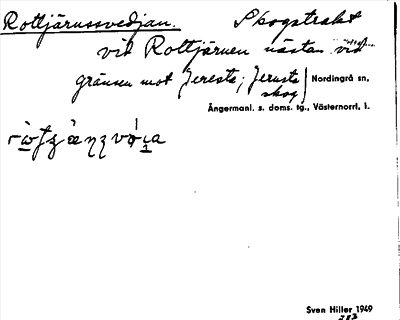 Rottjärnssvedjan. Skogstrakt
vid Rottjärnen nästan vid
gränsen mot Jeresta; Jerusta skog
Nordingrå sn,
Ångermanl. s. doms. tg., Västernorrl. l.
Sven Hiller 1949